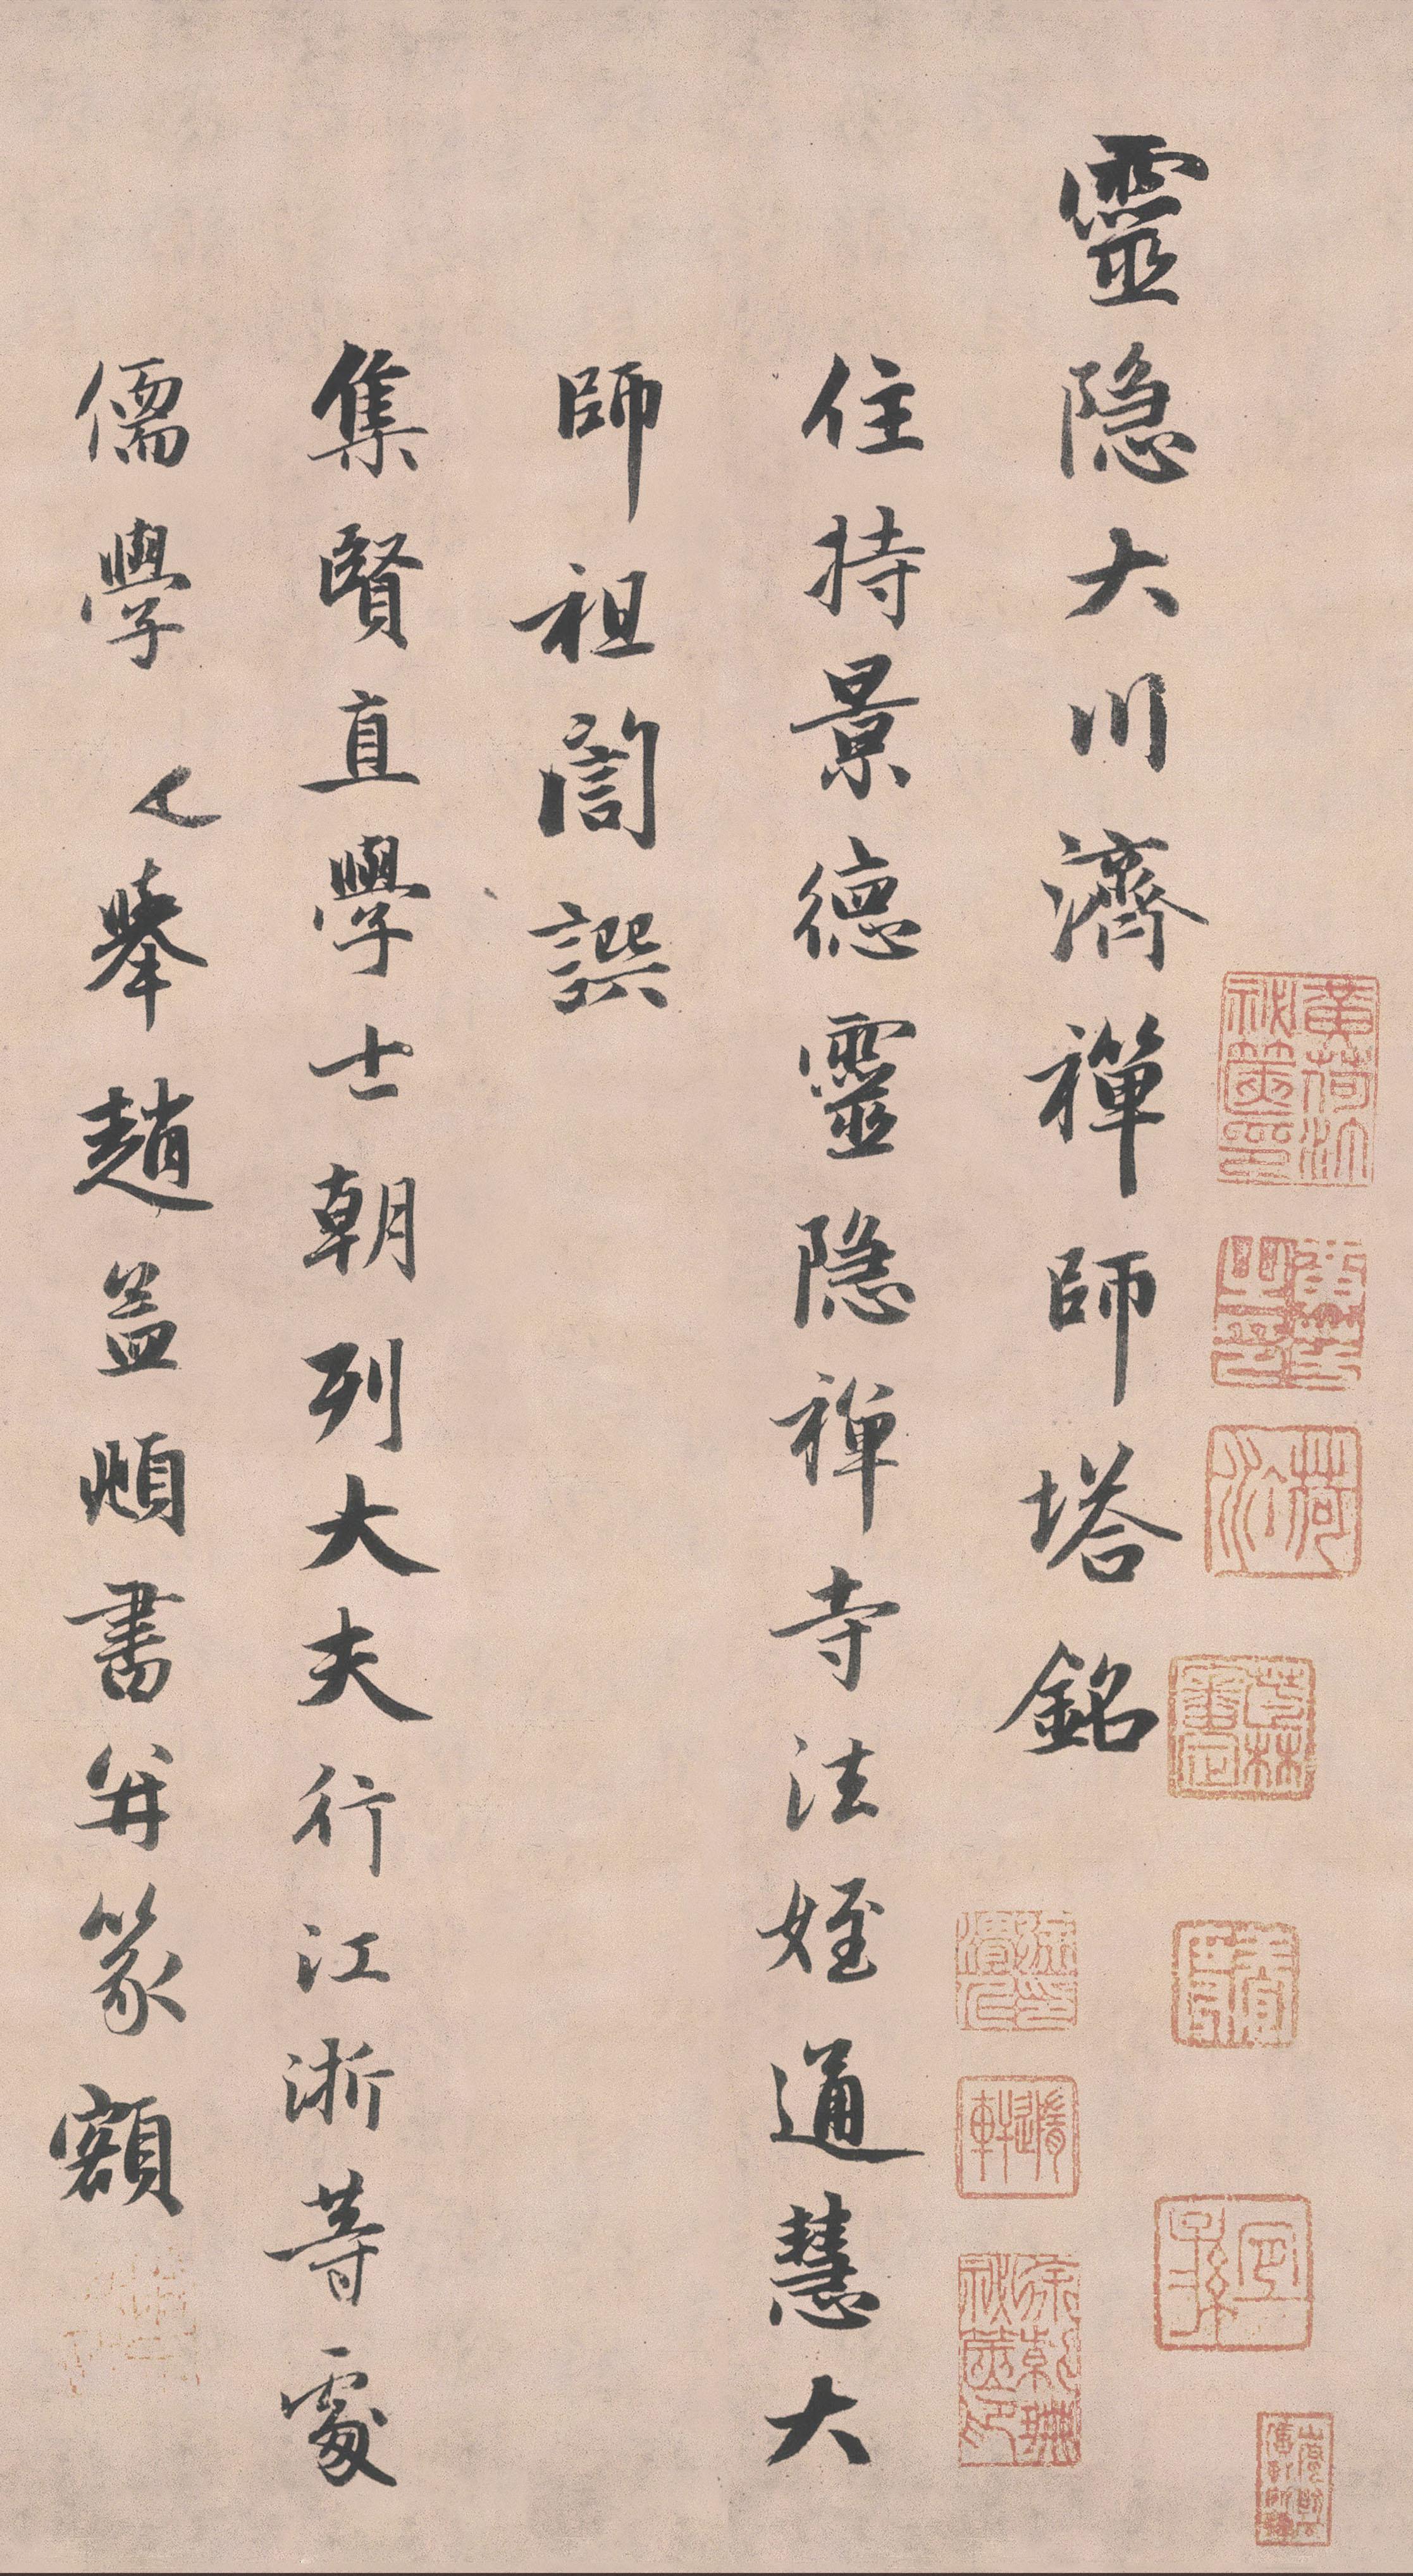 黃荷汀
祕笈印
荷汀
靈隐大川濟禪師塔銘
住持景德靈隐禪寺法姪通慧大
師祖誾譔
集賢直學士朝列大夫行江浙等處
儒學舉趙孟頫書并篆額